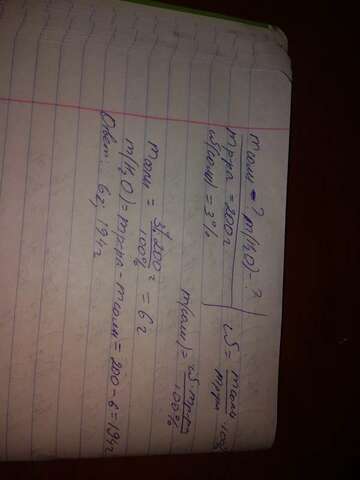 m соли - ? m(H₂O) - ?
m р-ра = 200 г
ω(соли) = 3%
ω = m соли · 100% / m р-ра
m(соли) = ω · m р-ра / 100%
m соли = 3% · 200 г / 100% = 6 г
m(H₂O) = m р-ра - m соли = 200 - 6 = 194 г
Ответ: 6 г, 194 г